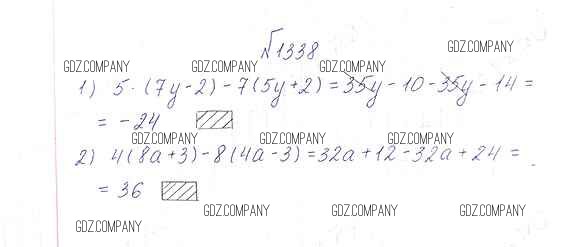 №1338
GDZ.COMPANY
GDZ.COMPANY GDZ.COMPANY GDZ.COMPANY
1) 5·(7y-2)-7(5y+2)=35y-10-35y-14=
= -24
GDZ.COMPANY GDZ.COMPANY GDZ.COMPANY
2) 4(8a+3)-8(4a-3)=32a+12-32a+24=
= 36
GDZ.COMPANY GDZ.COMPANY GDZ.COMPANY
GDZ.COMPANY